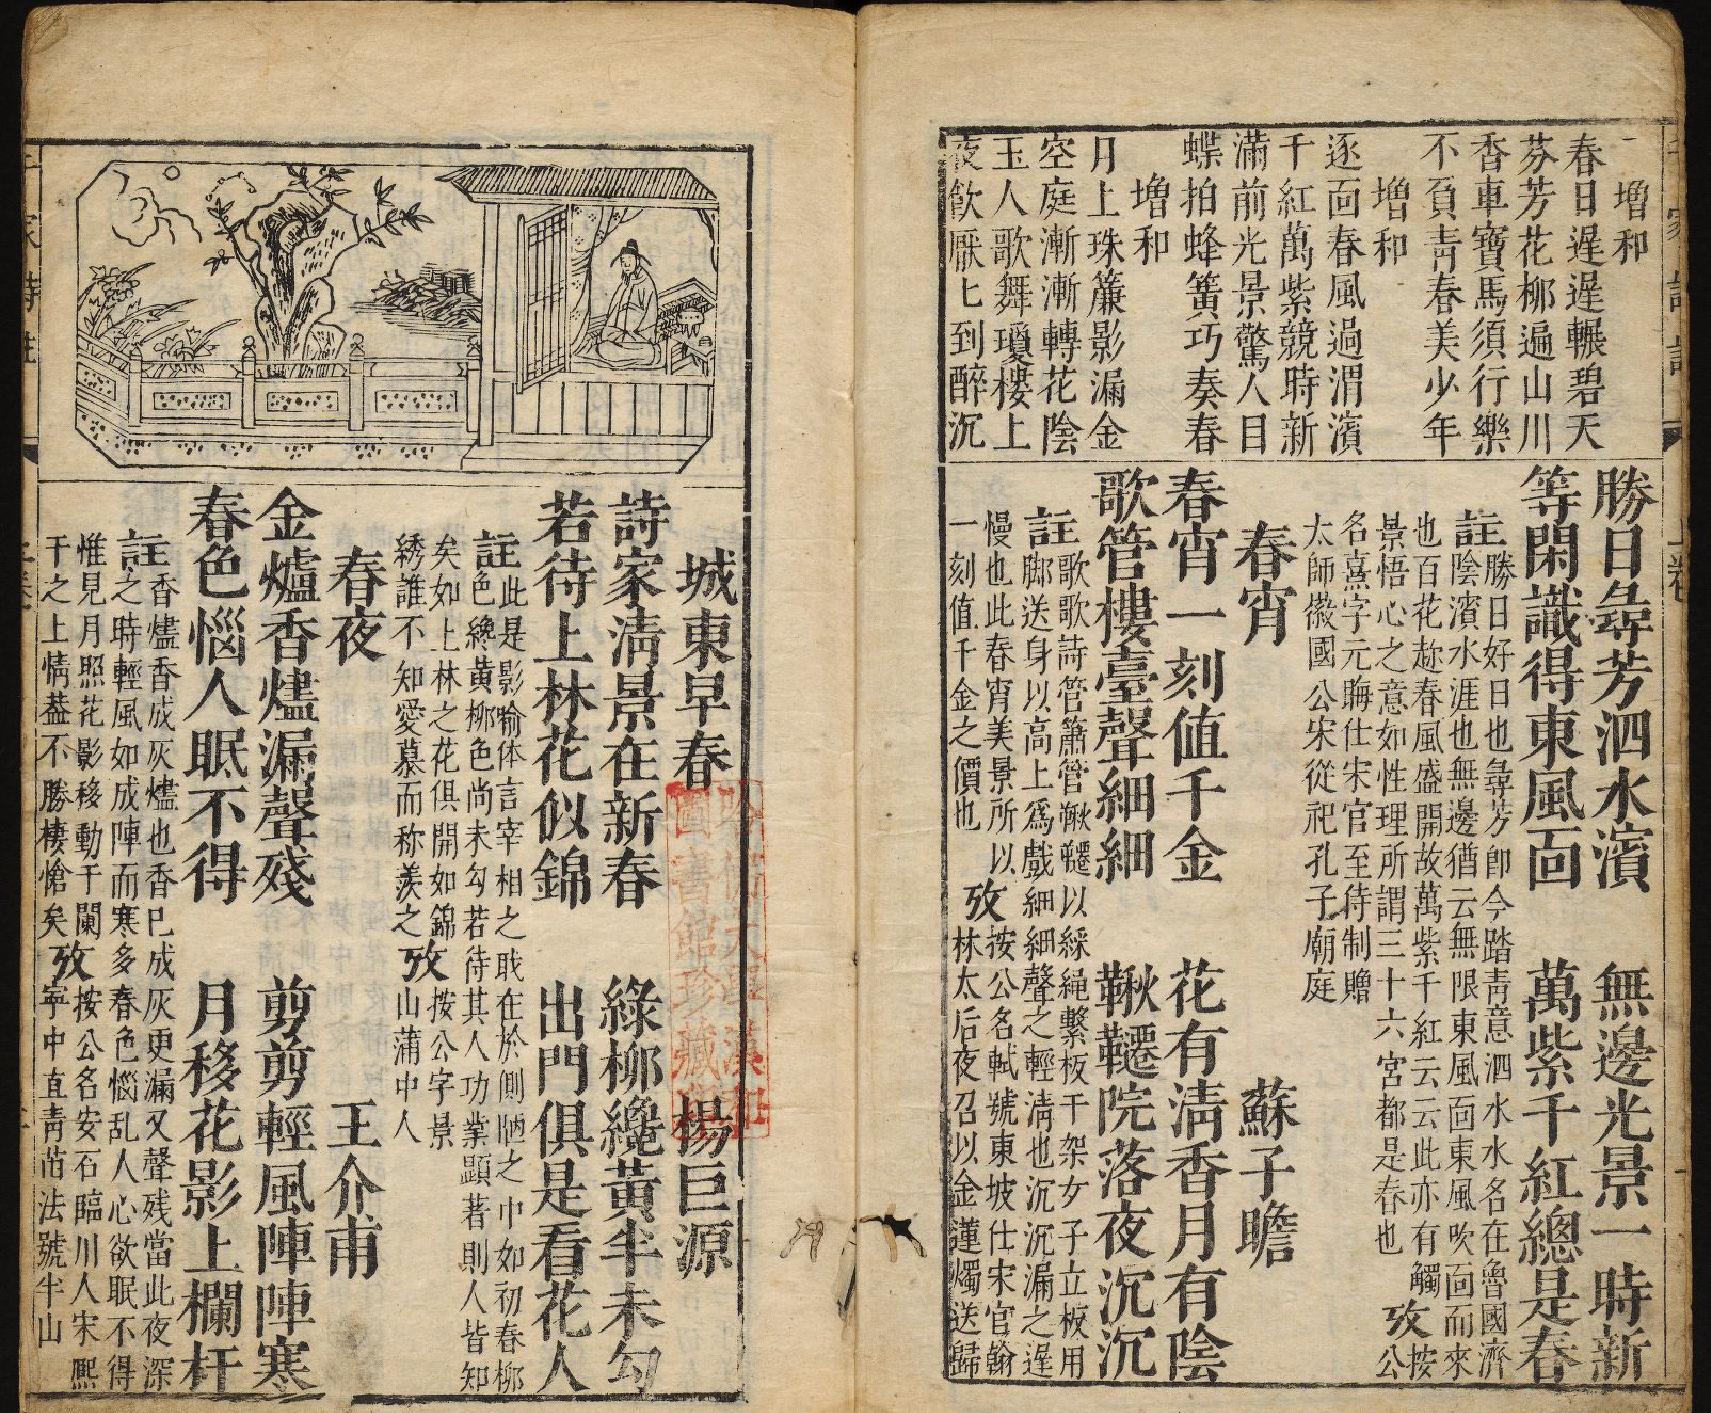 增和
春日遲遲輾碧天
芬芳花柳遍山川
香車寶馬須行樂
不負青春美少年
增和
逐面春風過渭濱
千紅萬紫競時新
滿前光景驚人目
蝶拍蜂簧巧奏春
增和
月上珠簾影漏金
空庭漸漸轉花陰
玉人歌舞瓊樓上
夜飲厭厭到醉沉
勝日尋芳泗水濱 無邊光景一時新
等閑識得東風面 萬紫千紅總是春
註 勝日好日也尋芳卽今踏青意泗水水名在魯國濟
陰濱水涯也無邊猶云無限東風面東風吹面而來
也百花趂春風盛開故萬紫千紅云云此亦有觸 攷 按
景悟心之意如性理所謂三十六宮都是春也 公
名熹字元晦仕宋官至待制贈
太師徽國公宋從祀孔子廟庭
春宵 蘇子瞻
春宵一刻值千金 花有清香月有陰
歌管樓臺聲細細 鞦韆院落夜沉沉
註 歌歌詩管簫管鞦韆以綵繩繫板干架女子立板用
脚送身以高上爲戲細細聲之輕清也沉沉漏之遲
慢也此春宵美景所以 攷 按公名軾號東坡仕宋官翰
一刻值千金之價也 林太后夜召以金蓮燭送歸
城東早春 楊巨源
詩家清景在新春 綠柳纔黃半未勻
若待上林花似錦 出門俱是看花人
註 此是影喻体言宰相之職在於側陋之中如初春柳
色纔黃柳色尚未勻若待其人功業顕著則人皆知
矣如上林之花俱開如錦 攷 按公字景
綉誰不知愛慕而称羨之 山蒲中人
春夜 王介甫
金爐香燼漏聲殘 剪剪輕風陣陣寒
春色惱人眠不得 月移花影上欄杆
註 香燼香成灰燼也香已成灰更漏又聲残當此夜深
之時輕風如成陣而寒多春色惱乱人心欲眠不得
惟見月照花影移動于闌 攷 按公名安石臨川人宋熈
干之上情葢不勝棲愴矣 寧中直青苗法號半山